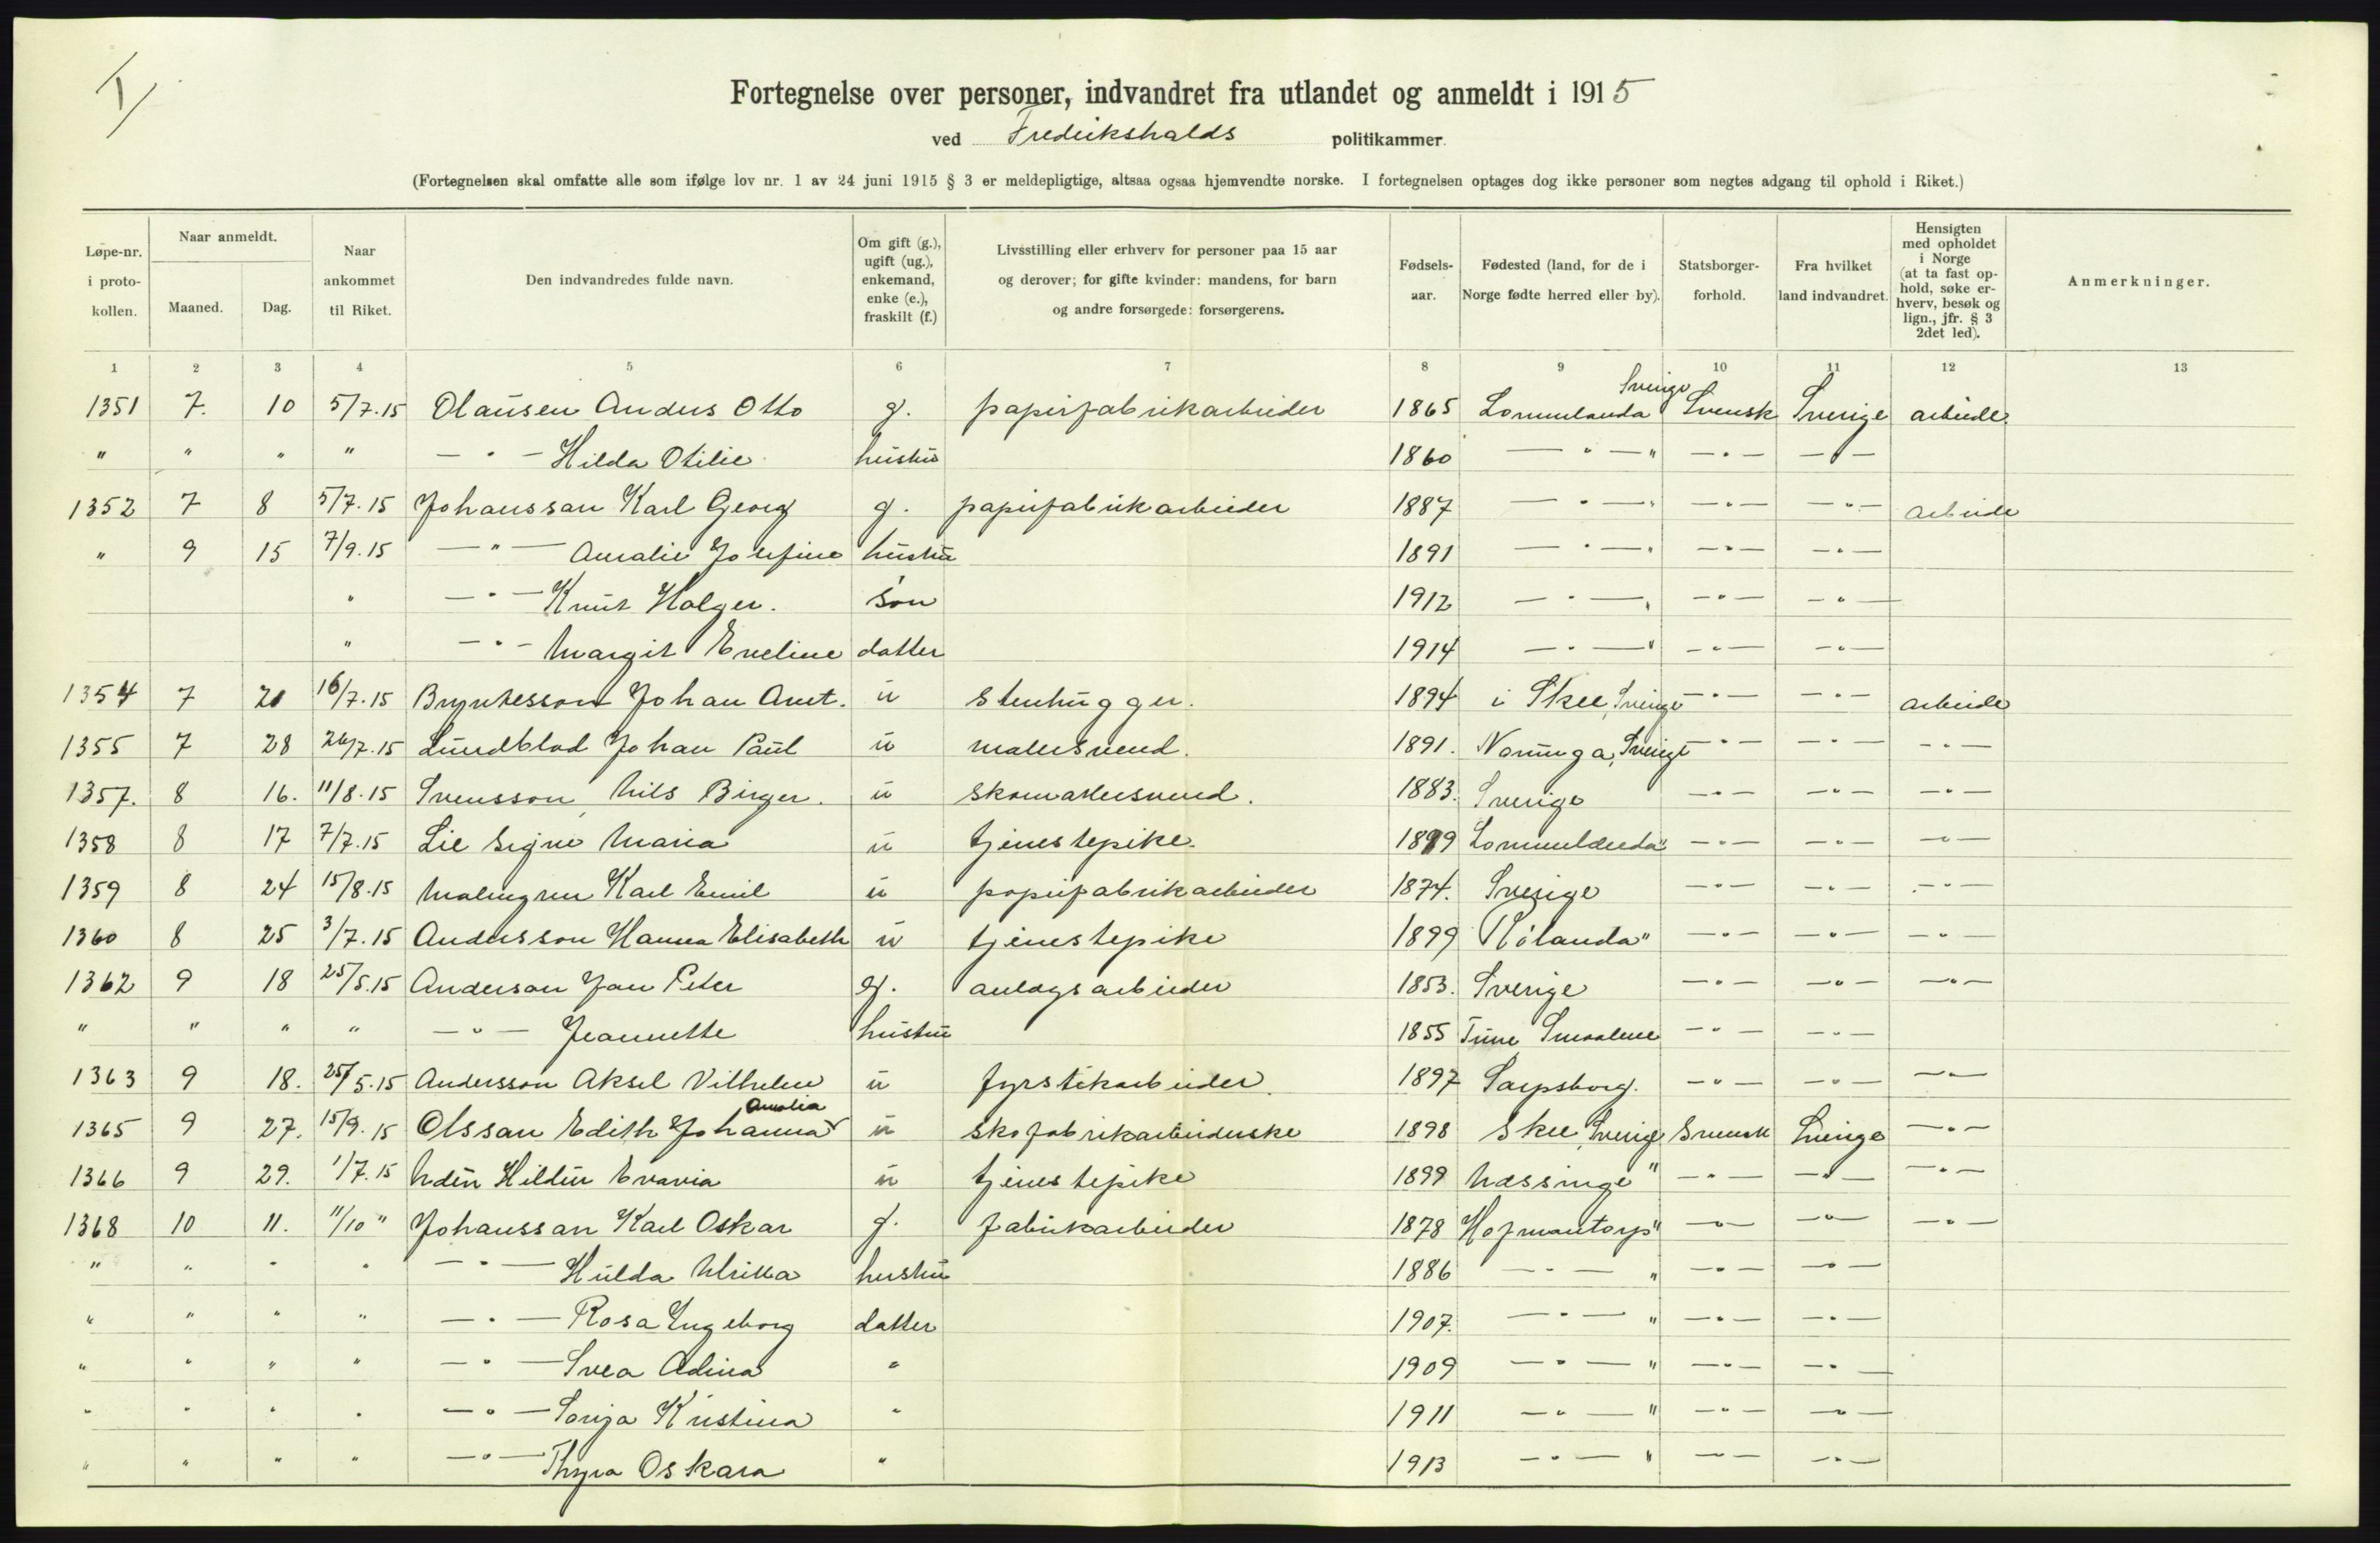 I/
Fortegnelse over personer, indvandret fra utlandet og anmeldt i 1915
ved Fredrikshalds politikammer.
(Fortegnelsen skal omfatte alle som ifølge lov nr. 1 av 24 juni 1915 § 3 er meldepligtige, altsaa ogsaa hjemvendte norske. I fortegnelsen optages dog ikke personer som negtes adgang til ophold i Riket.)
Løpe-nr. i proto-kollen. Naar anmeldt. Maaned. Dag. Naar ankommet til Riket. Den indvandredes fulde navn. Om gift (g.), ugift (ug.), enkemand, enke (e.), fraskilt (f.) Livsstilling eller erhverv for personer paa 15 aar og derover; for gifte kvinder: mandens, for barn og andre forsørgede: forsørgerens. Fødsels-aar. Fødested (land, for de i Norge fødte herred eller by). Statsborger-forhold. Fra hvilket land indvandret. Hensigten med opholdet i Norge (at ta fast op-hold, søke er-hverv, besøk og lign., jfr. § 3 2det led). Anmerkninger.
1 2 3 4 5 6 7 8 9 10 11 12 13
1351 7. 10 5/7.15 Olaüsen Anders Otto g. papirfabrikarbeider 1865 Lommelanda Sverige Svensk Sverige arbeide
" " " " — " — Hilda Otilie hustrü 1860 — " — " — " — — " —
1352 7 8 5/7.15 Johanssan Karl Georg g. papirfabrikarbeider 1887 — " — " — " — — " — arbeide
" 9 15 7/9.15 — " — Amalie Josefine hüstrü 1891 — " — " — " — — " —
" — " — Knüt Holger. søn 1912 — " — " — " — — " —
" — " — Margit Eveline datter 1914 — " — " — " — — " —
1354 7 20 16/7.15 Bryntesson Johan Arnt. ü stenhügger. 1894 i Skee, Sverige — " — — " — arbeide
1355 7 28 26/7.15 Lündblad Johan Paül ü malersvend. 1891. Norünga, Sverige — " — — " — — " —
1357. 8 16. 11/8.15 Svensson, Nils Birger. ü skomakersvend. 1883. Sverige — " — — " — — " —
1358 8 17 7/7.15 Lie Signe Maria ü tjenestepike. 1899 Lommelanda " — " — — " — — " —
1359 8 24 15/8.15 Malmgren Karl Emil ü papirfabrikarbeider 1874. Sverige — " — — " — — " —
1360 8 25 3/7.15 Andersson Hanna Elisabeth ü tjenestepike 1899 Rölanda " — " — — " — — " —
1362 9 18 25/5.15 Anderson Jan Peter g. anlægsarbeider 1853. Sverige — " — — " — — " —
" " " " — " — Jeannette hüstrü 1855 Tüne Smaalene — " — — " —
1363 9 18. 25/5.15 Andersson Aksel Vilhelm ü fyrstikarbeider. 1897 Sarpsborg. — " — — " — — " —
1365 9 27. 15/9.15 Olssan Edith Johanna Amalia ü skofabrikarbeiderske 1898 Skee, Sverige Svensk Sverige — " —
1366 9 29. 1/7.15 Udén Hildür Evaria ü tjenestepike 1899 Næssinge " — " — — " — — " —
1368 10 11. 11/10 " Johanssan Karl Oskar g. fabrikarbeider 1878 Hofmantorp " — " — — " — — " —
" " " " — " — Hülda Ulrikka hüstrü 1886 — " — " — " — — " —
" " " " — " — Rosa Ingeborg datter 1907. — " — " — " — — " —
" " " " — " — Svea Adina " 1909 — " — " — " — — " —
" " " " — " — Sonja Kristina " 1911 — " — " — " — — " —
" " " " — " — Thyra Oskara " 1913 — " — " — " — — " —